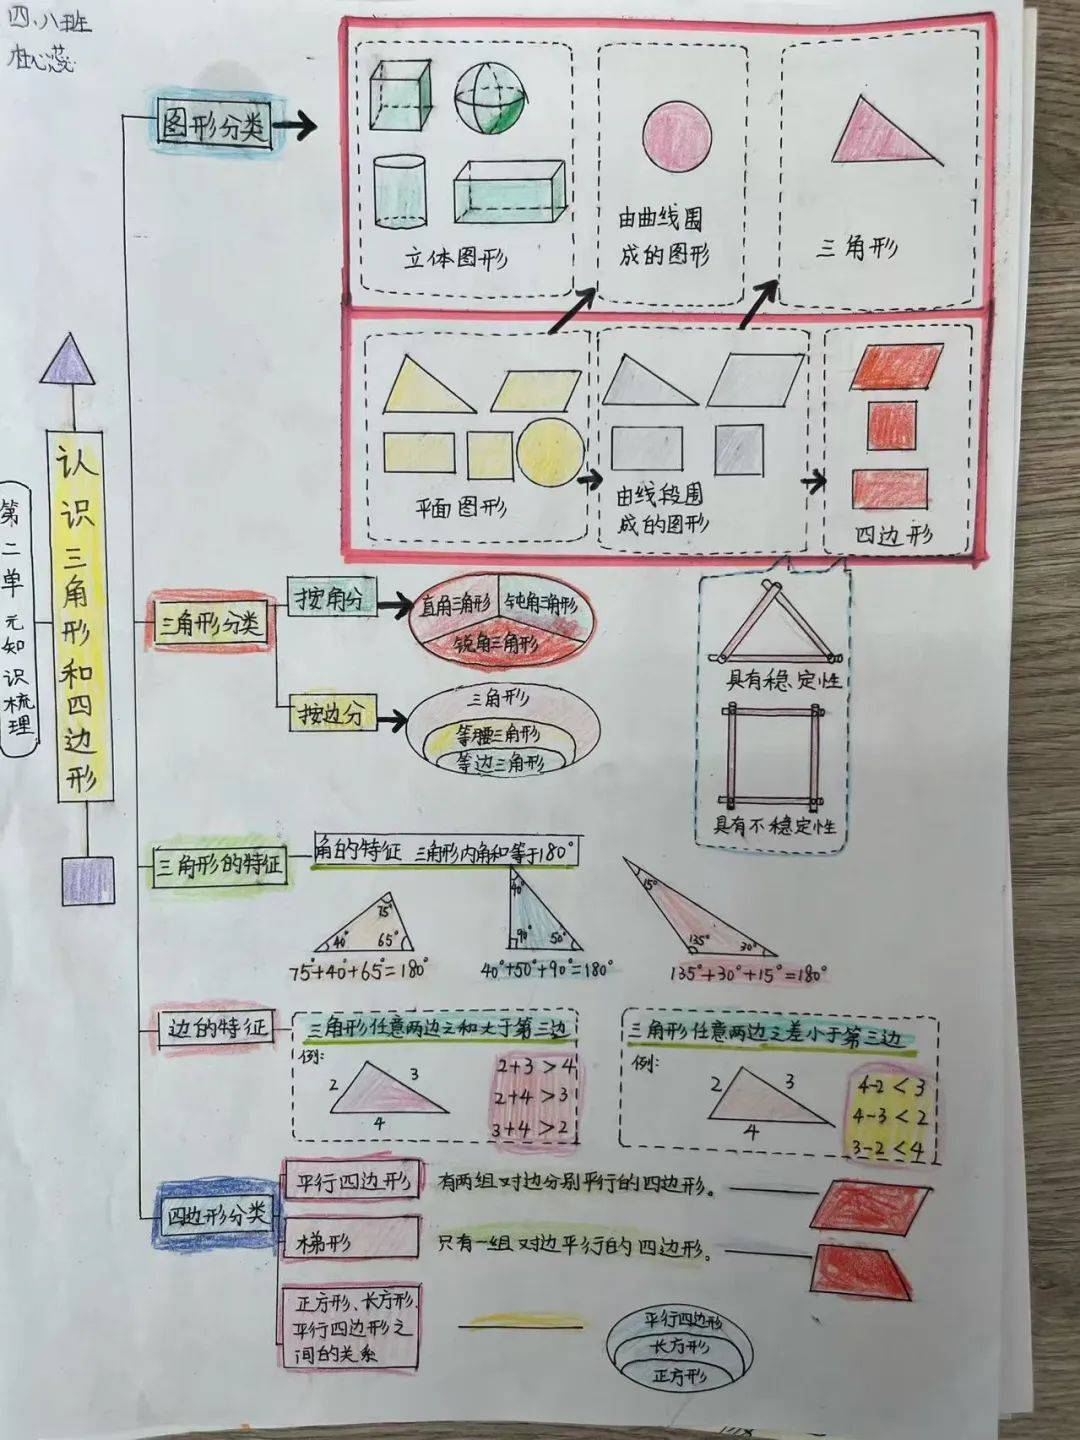 四、八班
杜心蕊
第二单元知识梳理
认识三角形和四边形
图形分类
立体图形
由曲线围
成的图形
三角形
平面图形
由线段围
成的图形
四边形
三角形分类
按角分
直角三角形
钝角三角形
锐角三角形
按边分
三角形
等腰三角形
等边三角形
具有稳定性
具有不稳定性
三角形的特征
角的特征 三角形内角和等于180°
75°
40°
65°
75°+40°+65°=180°
40°
90°
50°
40°+50°+90°=180°
15°
135°
30°
135°+30°+15°=180°
边的特征
三角形任意两边之和大于第三边
例:
2
3
4
2+3>4
2+4>3
3+4>2
三角形任意两边之差小于第三边
例:
2
3
4
4-2<3
4-3<2
3-2<4
四边形分类
平行四边形
有两组对边分别平行的四边形。
梯形
只有一组对边平行的四边形。
正方形、长方形、
平行四边形之
间的关系
平行四边形
长方形
正方形